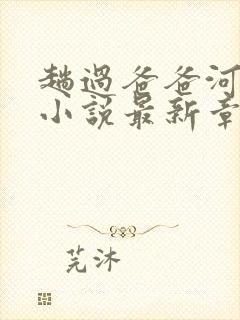 趟過爸爸河
小說最新章
芫沐